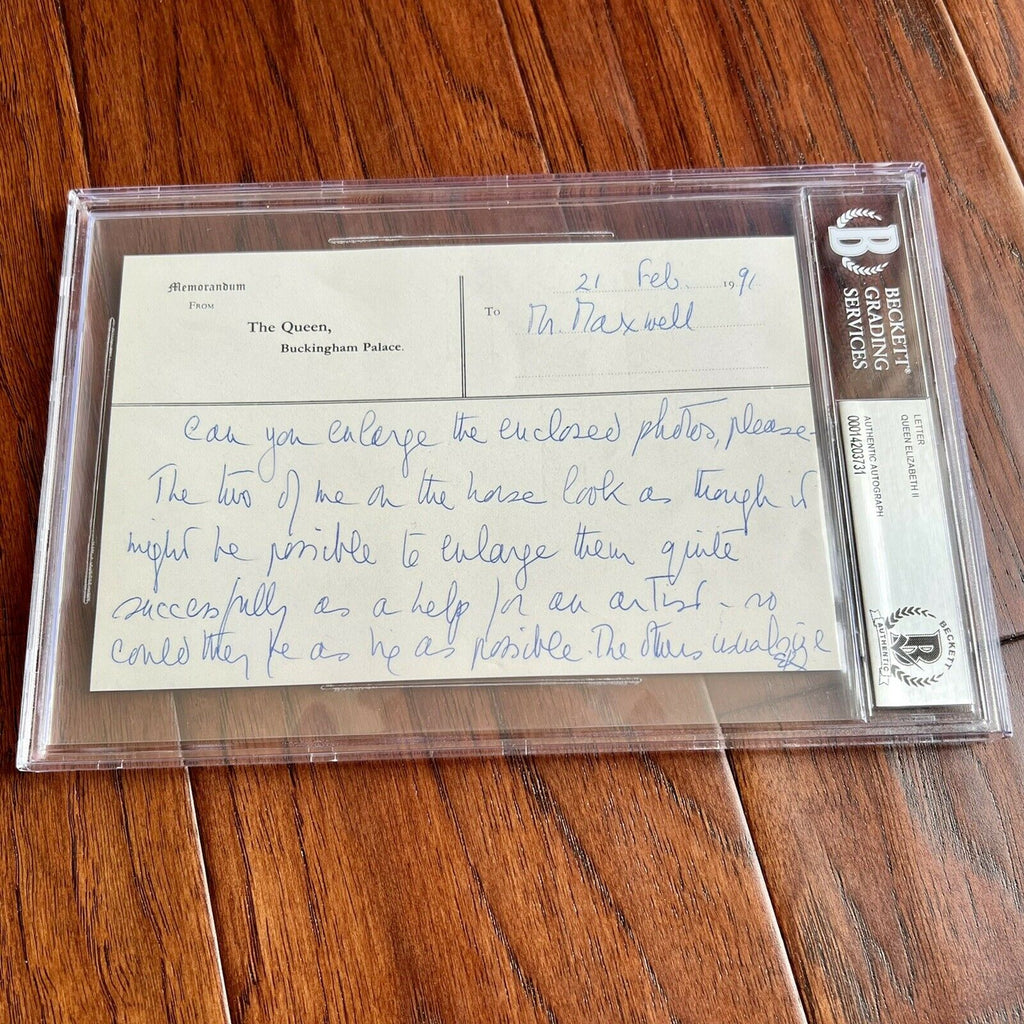 Memorandum
FROM
The Queen,
Buckingham Palace.
21 Feb. 1991
To Mr. Maxwell
Can you enlarge the enclosed photos, please-
The two of me on the horse look as though it
might be possible to enlarge them quite
successfully as a help for an artist - so
could they be as big as possible. The others usual size
ER
BECKETT®
GRADING
SERVICES
LETTER
QUEEN ELIZABETH II
AUTHENTIC AUTOGRAPH
00014203731
BECKETT
AUTHENTIC